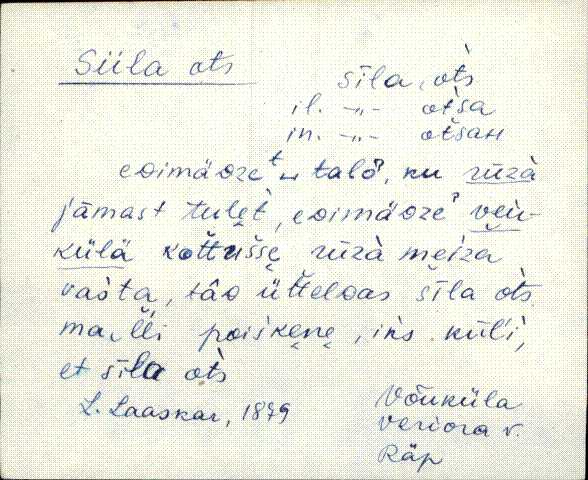 Siila ots
sīla ot̀s
il. -„- ot̀sa
in. -„- ot̆saн
eᴅimäᴅze talo̭ˀ, ku rūzà
jāmast tulèt, eᴅimäᴅzeˀ veìi-
külä kot̆tušse̬ rūzà meiza
vašta, tâᴅ üt̆telᴅas šīla ot̀s.
ma‿l̆li poiske̬ne̬, iks kül'i,
et sīla ot̀s
L. Laaskar, 1879
Võuküla
Veriora v.
Räp